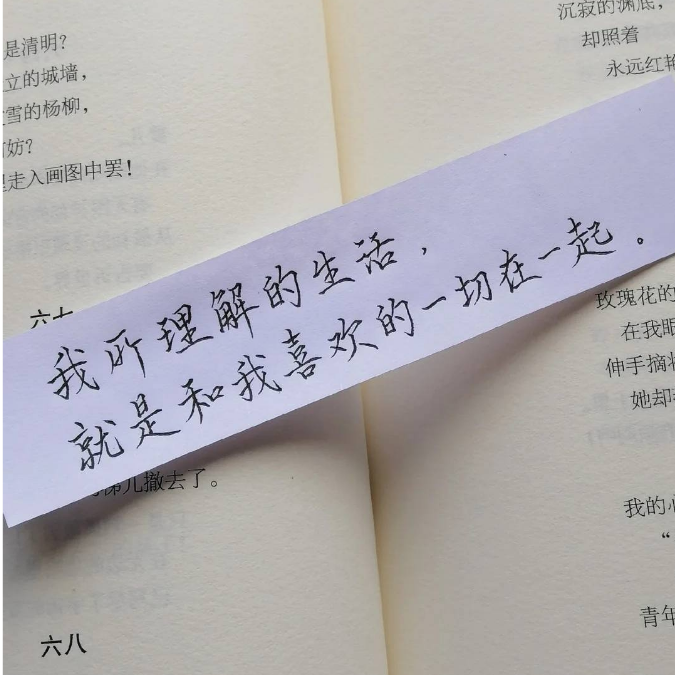 是清明?
立的城墙,
雪的杨柳,
妨?
走入画图中罢!
六十
我所理解的生活,
就是和我喜欢的一切在一起。
儿撤去了。
六八
沉寂的渊底,
却照着
永远红艳
玫瑰花的
在我眼
伸手摘
她却
我的心
“
青年